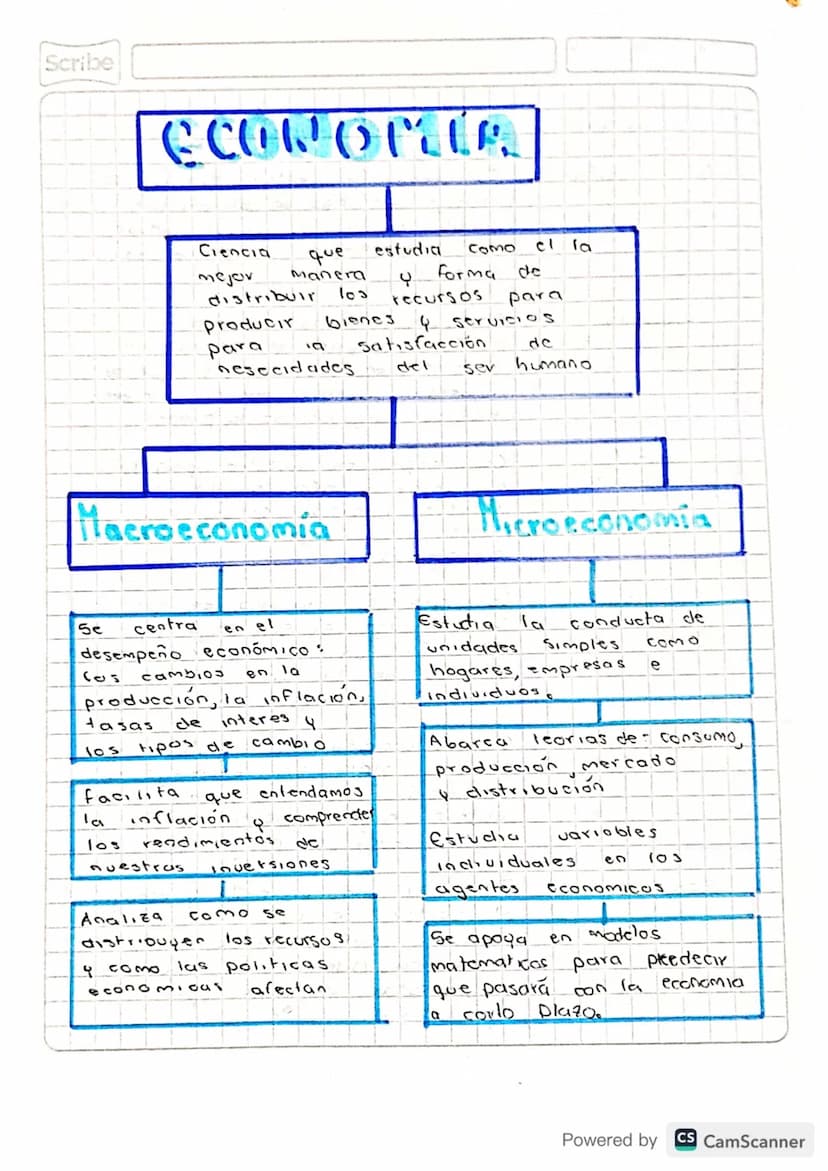 Scribe
ECONOMÍA
Ciencia que estudia como el la
mejor manera y forma de
distribuir los recursos para
producir bienes y servicios
para la satisfacción de
nesecidades del ser humano
Macroeconomía
Se centra en el
desempeño económico:
los cambios en la
producción, la inflación,
tasas de interes y
los tipos de cambio
facilita que entendamos
la inflación y comprender
los rendimientos de
nuestras inversiones
Analiza como se
distribuyen los recursos
y como las politicas
economicas afectan
Microeconomía
Estudia la conducta de
unidades simples como
hogares, empresas e
individuos.
Abarca teorias de: consumo,
producción, mercado
y distribución
Estudia variables
individuales en los
agentes economicos
Se apoya en modelos
matematicos para predecir
que pasará con la economia
a corto plazo.
Powered by CS CamScanner